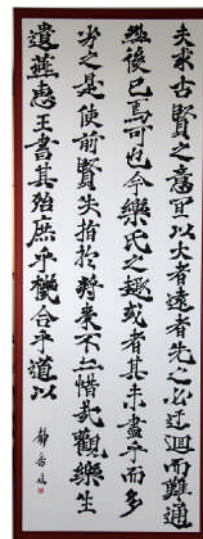 夫求古賢之意宜以大者遠者先之必迂迴而難通
然後已焉可也今樂氏之趣或者其未盡乎而多
劣之是使前賢失指於將來不亦惜哉觀樂生
遺燕惠王書其殆庶乎機合乎道以